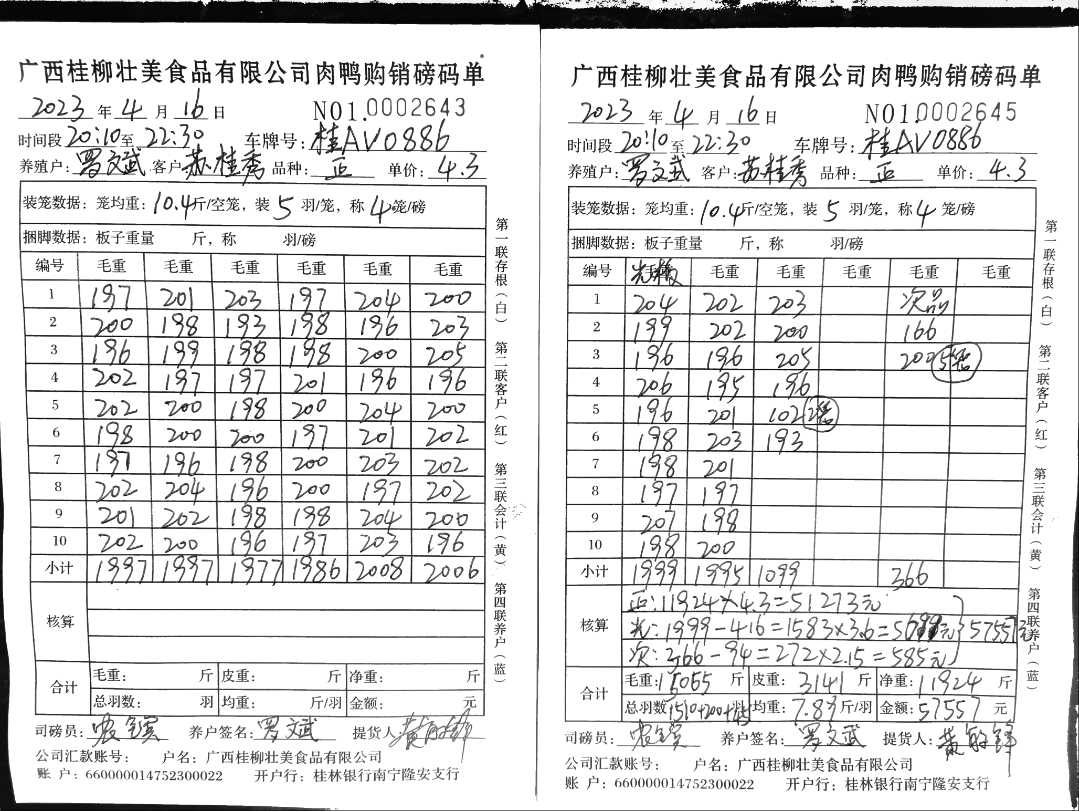 广西桂柳壮美食品有限公司肉鸭购销磅码单
2023 年 4 月 16 日 NO1.0002643
时间段 20:10 至 22:30 车牌号: 桂AV0886
养殖户: 罗文武 客户: 苏桂秀 品种: 正 单价: 4.3
装笼数据: 笼均重: 10.4 斤/空笼, 装 5 羽/笼, 称 4 笼/磅
捆脚数据: 板子重量 斤, 称 羽/磅
编号 毛重 毛重 毛重 毛重 毛重 毛重
1 197 201 203 197 204 200
2 200 198 193 198 196 203
3 196 199 198 198 200 205
4 202 197 197 201 196 196
5 202 200 198 200 204 200
6 198 200 200 197 201 202
7 197 196 198 200 203 202
8 202 204 196 200 197 202
9 201 202 198 198 204 200
10 202 200 196 197 203 196
小计 1997 1997 1977 1986 2008 2006
核算
合计 毛重: 斤 皮重: 斤 净重: 斤
总羽数: 羽 均重: 斤/羽 金额: 元
司磅员: 养户签名: 罗文武 提货人
公司汇款账号: 户名: 广西桂柳壮美食品有限公司
账 户: 660000014752300022 开户行: 桂林银行南宁隆安支行
第一联存根(白) 第二联客户(红) 第三联会计(黄) 第四联养户(蓝)
广西桂柳壮美食品有限公司肉鸭购销磅码单
2023 年 4 月 16 日 NO1.0002645
时间段 20:10 至 22:30 车牌号: 桂AV0886
养殖户: 罗文武 客户: 苏桂秀 品种: 正 单价: 4.3
装笼数据: 笼均重: 10.4 斤/空笼, 装 5 羽/笼, 称 4 笼/磅
捆脚数据: 板子重量 斤, 称 羽/磅
编号 毛重 毛重 毛重 毛重 毛重
1 204 202 203 次品
2 199 202 200 166
3 196 196 205 200 5笼
4 206 195 196
5 196 201 102 2笼
6 198 203 193
7 198 201
8 197 197
9 207 198
10 198 200
小计 1999 1995 1099 366
核算 正:11924×4.3=51273元
光:1999-416=1583×3.6=5699元 57557元
次:366-94=272×2.15=585元
合计 毛重: 15065 斤 皮重: 3141 斤 净重: 11924 斤
总羽数 1510+200+ 均重: 7.89 斤/羽 金额: 57557 元
司磅员: 养户签名: 罗文武 提货人:
公司汇款账号: 户名: 广西桂柳壮美食品有限公司
账 户: 660000014752300022 开户行: 桂林银行南宁隆安支行
第一联存根(白) 第二联客户(红) 第三联会计(黄) 第四联养户(蓝)